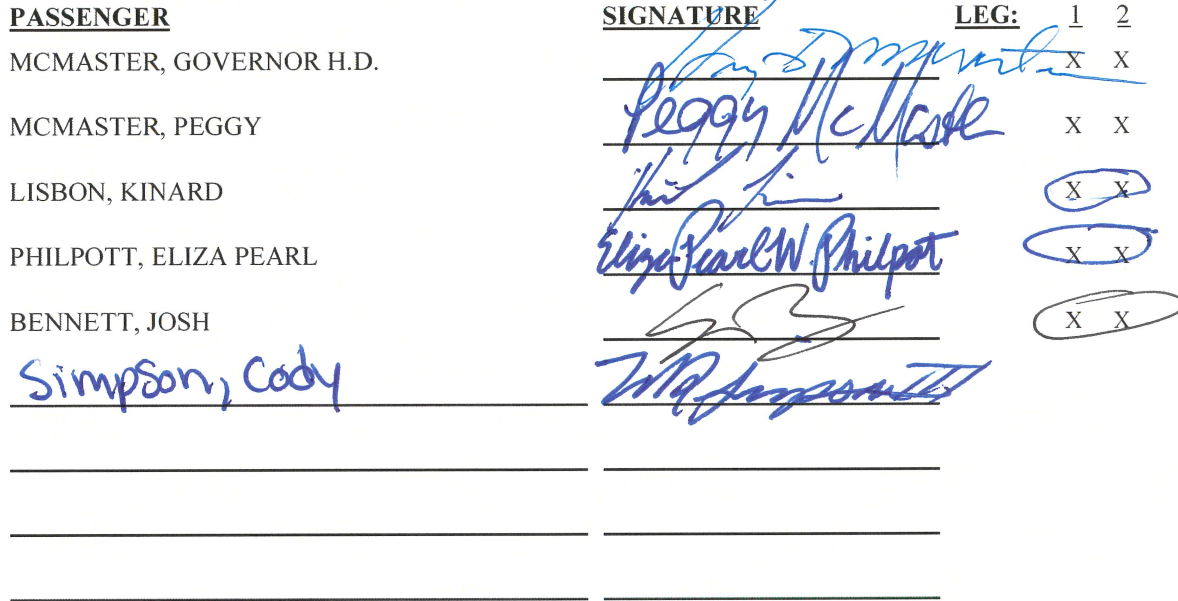 PASSENGER SIGNATURE LEG: 1 2
MCMASTER, GOVERNOR H.D. X X
MCMASTER, PEGGY Peggy McMaster X X
LISBON, KINARD X X
PHILPOTT, ELIZA PEARL Eliza Pearl W. Philpot X X
BENNETT, JOSH X X
Simpson, Cody